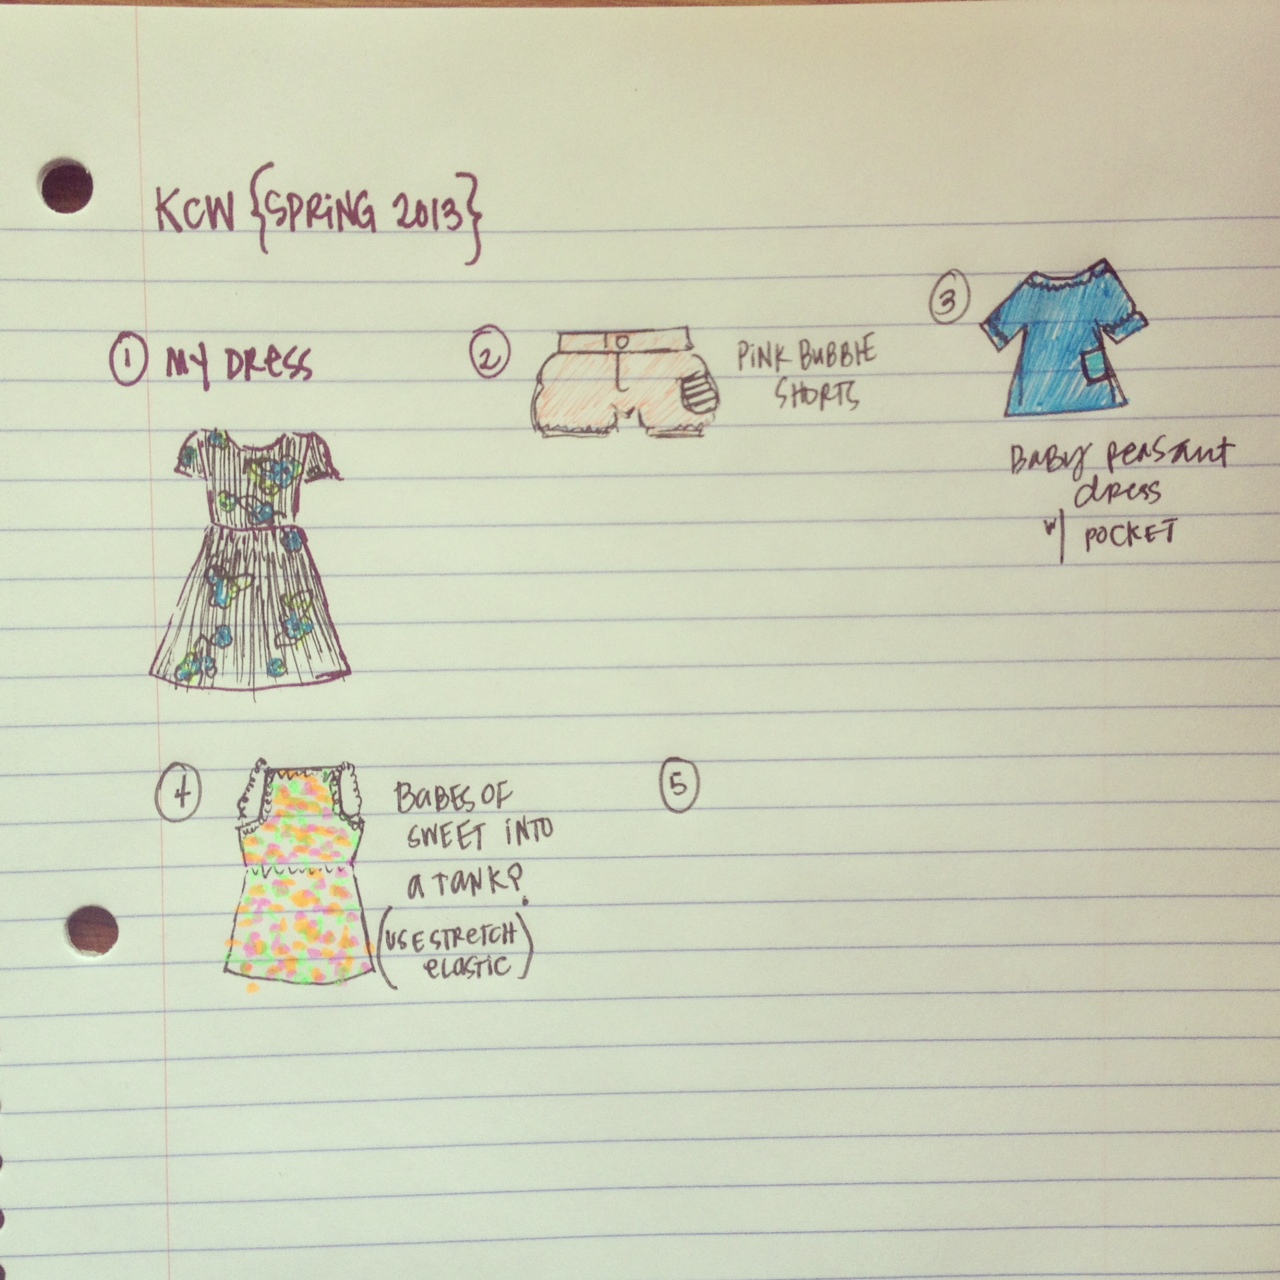 KCW {SPRING 2013}
① MY DRESS
② PINK BUBBLE
SHORTS
③
BABY PEASANT
DRESS
W/ POCKET
④ BABES OF
SWEET INTO
A TANK?
(USE STRETCH
ELASTIC)
⑤